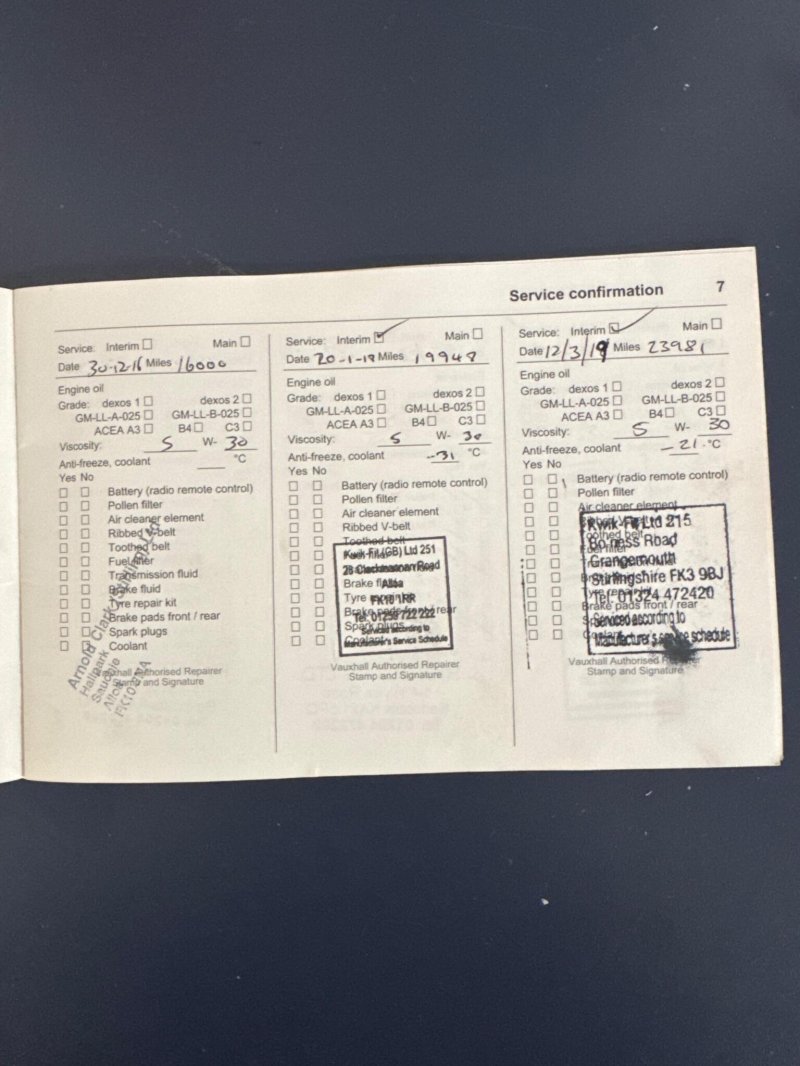 Service confirmation 7
Service: Interim Main
Date 30-12-16 Miles 16000
Engine oil
Grade: dexos 1 dexos 2
GM-LL-A-025 GM-LL-B-025
ACEA A3 B4 C3
Viscosity: 5 W- 30
Anti-freeze, coolant °C
Yes No
Battery (radio remote control)
Pollen filter
Air cleaner element
Ribbed V-belt
Toothed belt
Fuel filter
Transmission fluid
Brake fluid
Tyre repair kit
Brake pads front / rear
Spark plugs
Coolant
Vauxhall Authorised Repairer
Stamp and Signature
Arnold Clark Stirling Ltd
Hallpark
Sauchie
Alloa
FK10
Service: Interim ✓ Main
Date 20-1-18 Miles 19948
Engine oil
Grade: dexos 1 dexos 2
GM-LL-A-025 GM-LL-B-025
ACEA A3 B4 C3
Viscosity: 5 W- 30
Anti-freeze, coolant -31 °C
Yes No
Battery (radio remote control)
Pollen filter
Air cleaner element
Ribbed V-belt
Toothed belt
Brake fluid
Tyre
Brake pads front / rear
Spark plugs
Coolant
Kwik-Fit (GB) Ltd 251
28 Clackmannan Road
Alloa
FK10 1RR
Tel: 01259 722 222
Serviced according to
Manufacturer's Service Schedule
Vauxhall Authorised Repairer
Stamp and Signature
Service: Interim ✓ Main
Date 12/3/19 Miles 23981
Engine oil
Grade: dexos 1 dexos 2
GM-LL-A-025 GM-LL-B-025
ACEA A3 B4 C3
Viscosity: 5 W- 30
Anti-freeze, coolant -21 °C
Yes No
Battery (radio remote control)
Pollen filter
Air cleaner element
Toothed belt
Brake pads front / rear
Kwik-Fit Ltd 215
Bo-ness Road
Grangemouth
Stirlingshire FK3 9BJ
Tel: 01324 472420
Serviced according to
Manufacturer's service schedule
Vauxhall Authorised Repairer
Stamp and Signature